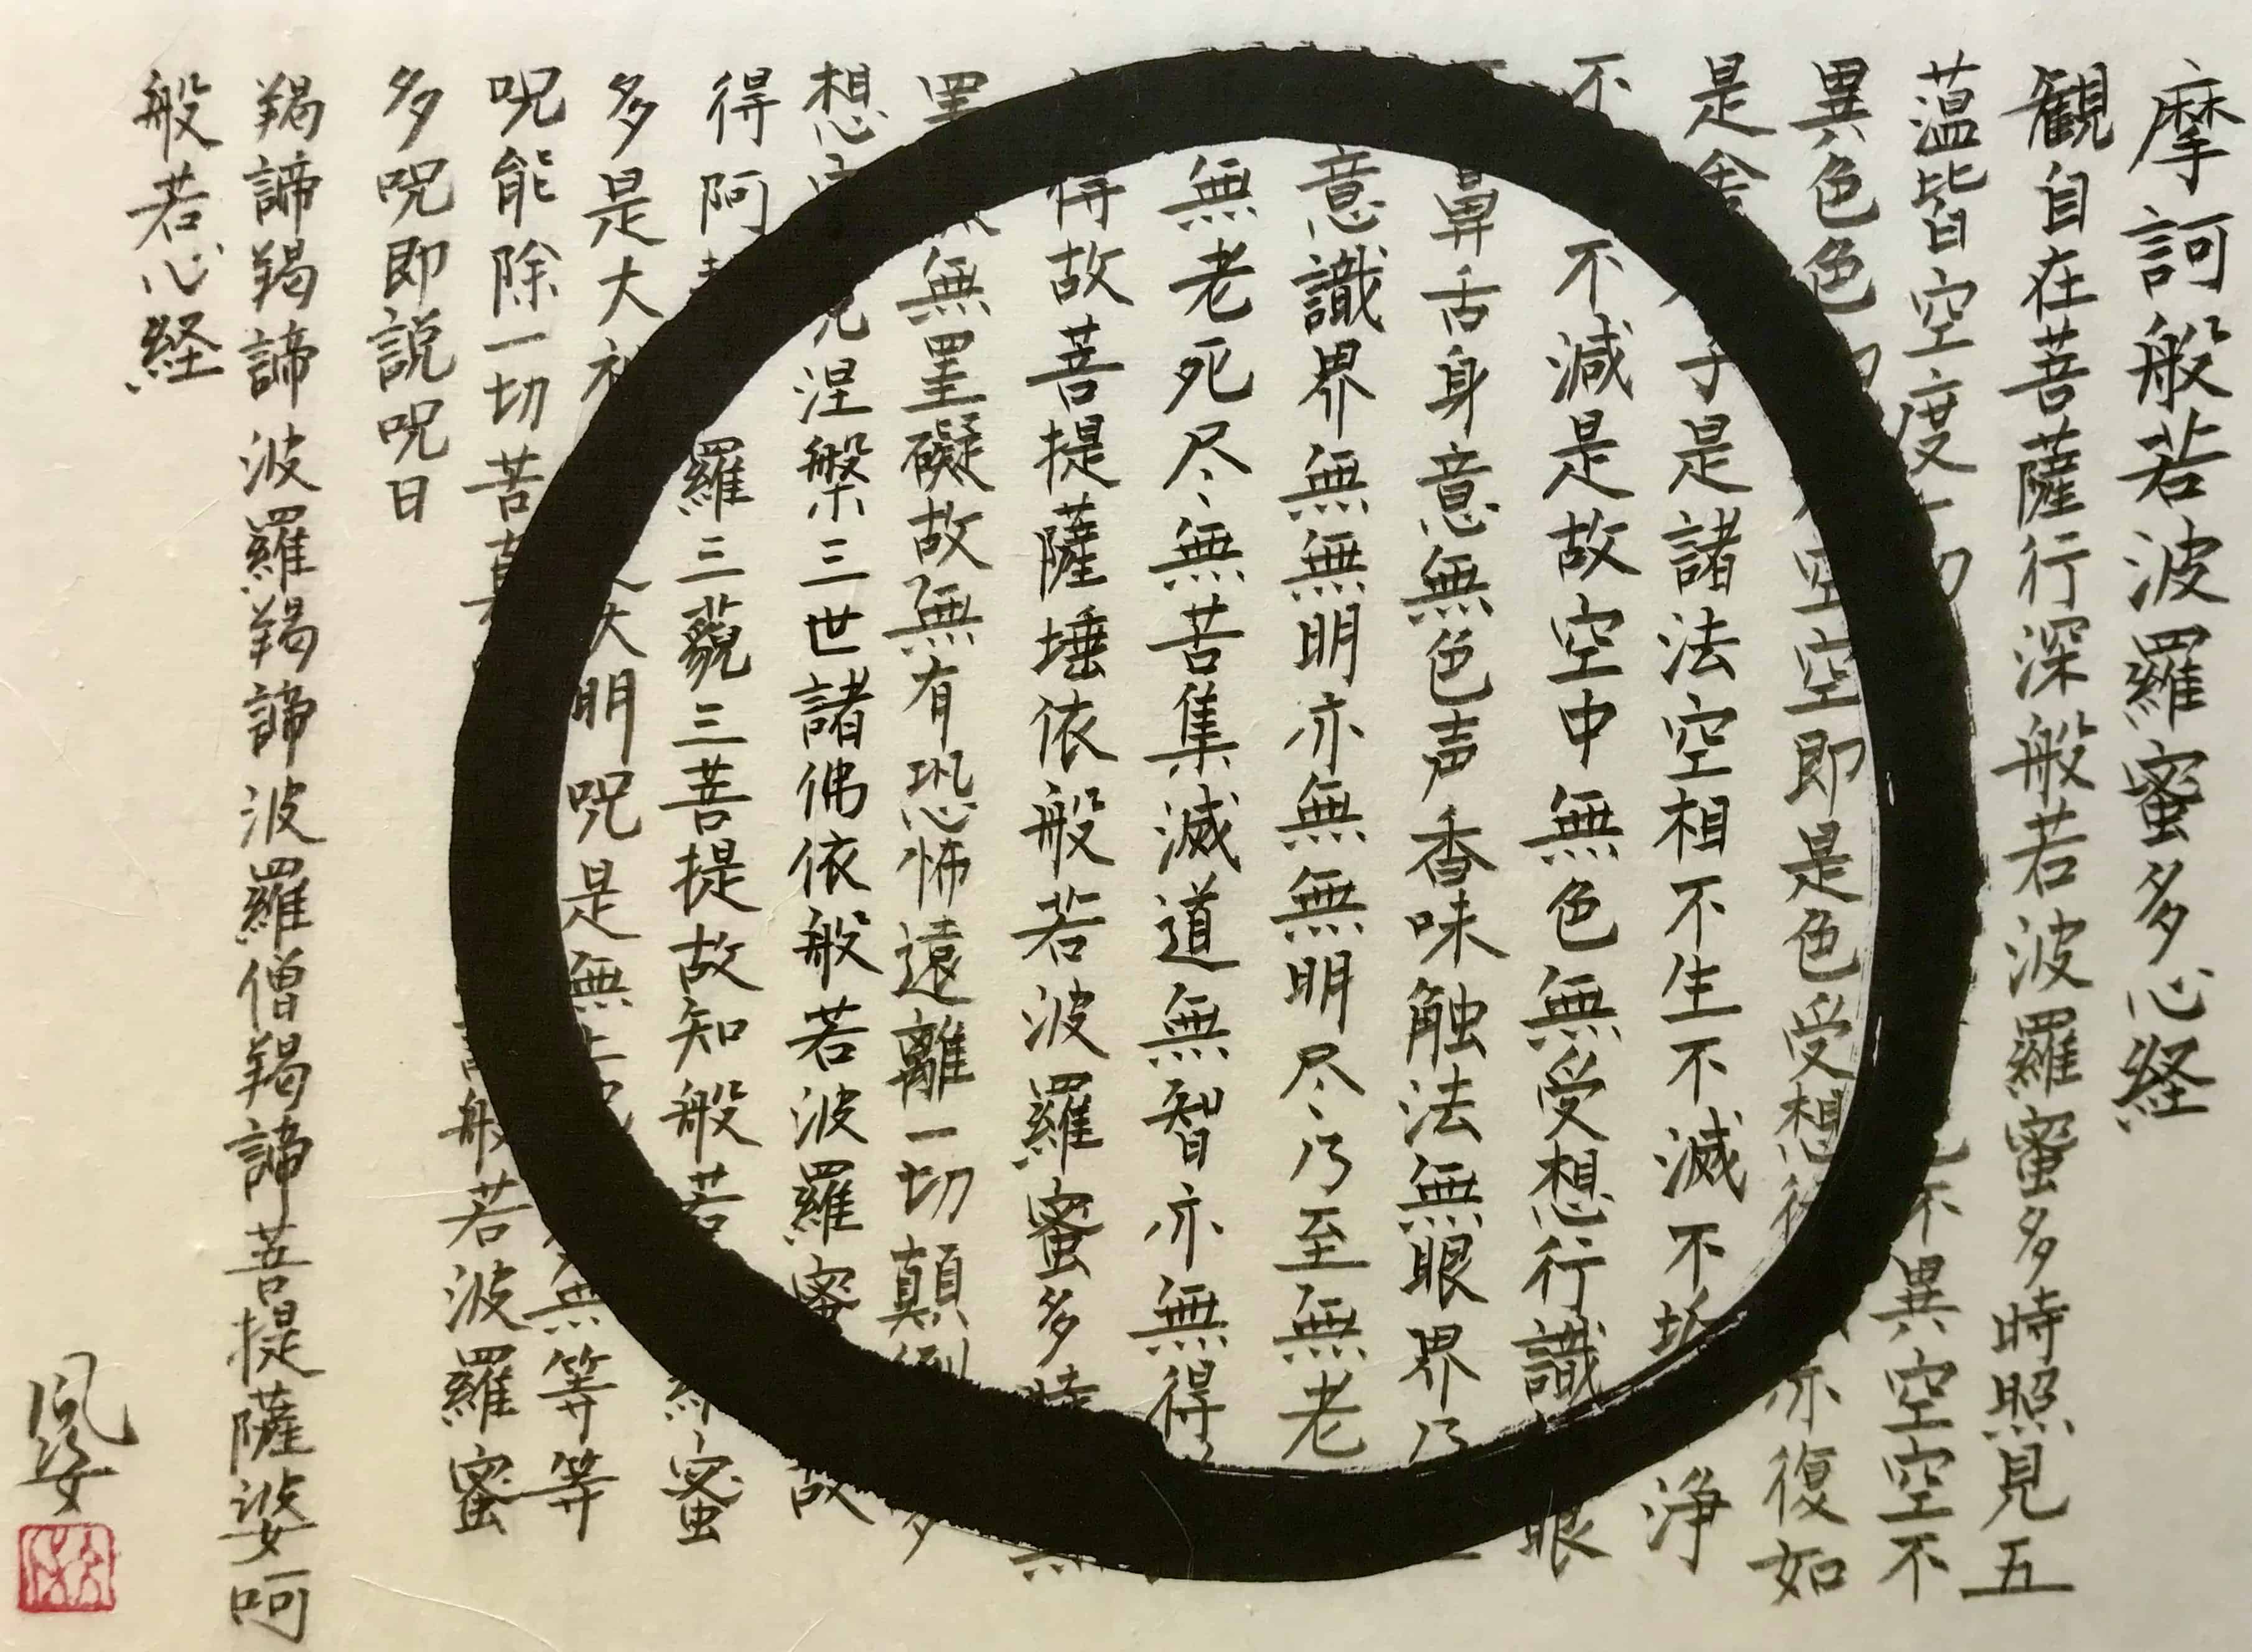 摩訶般若波羅蜜多心経
観自在菩薩行深般若波羅蜜多時照見五
蕰皆空度一切不異空空不
異色色空空即是色受想行亦復如
是舎子是諸法空相不生不滅不垢浄
不不減是故空中無色無受想行識眼
鼻舌身意無色声香味触法無眼界乃
意識界無無明亦無無明尽乃至無老
無老死尽無苦集滅道無智亦無得
得故菩提薩埵依般若波羅蜜多
罣無罣礙故無有恐怖遠離一切顛倒
想涅槃三世諸佛依般若波羅蜜故
得阿羅三藐三菩提故知般若蜜
多是大大明呪是無等等
呪能除一切苦般若波羅蜜
多呪即説呪曰
羯諦羯諦波羅羯諦波羅僧羯諦菩提薩婆呵
般若心経